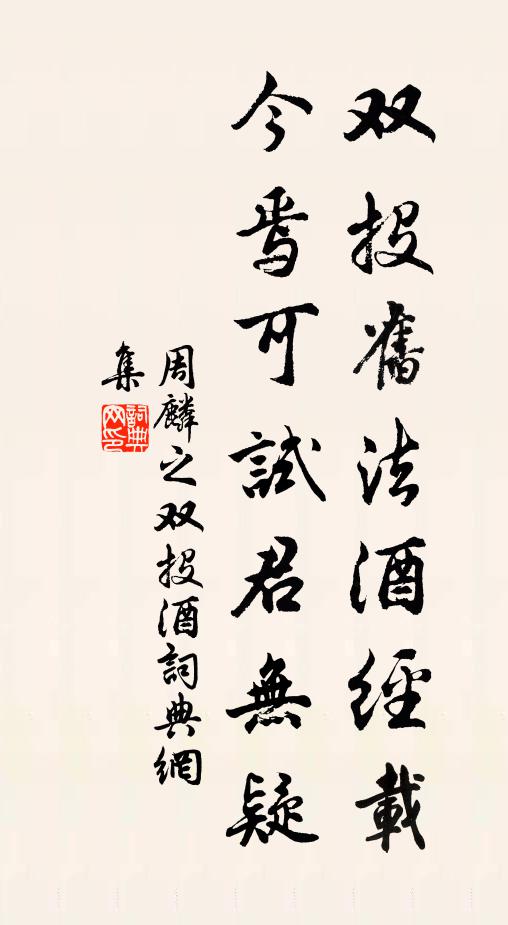 双投舊法酒經載
今焉可試君無疑
周麟之双投酒詞典網
集
詞典網印